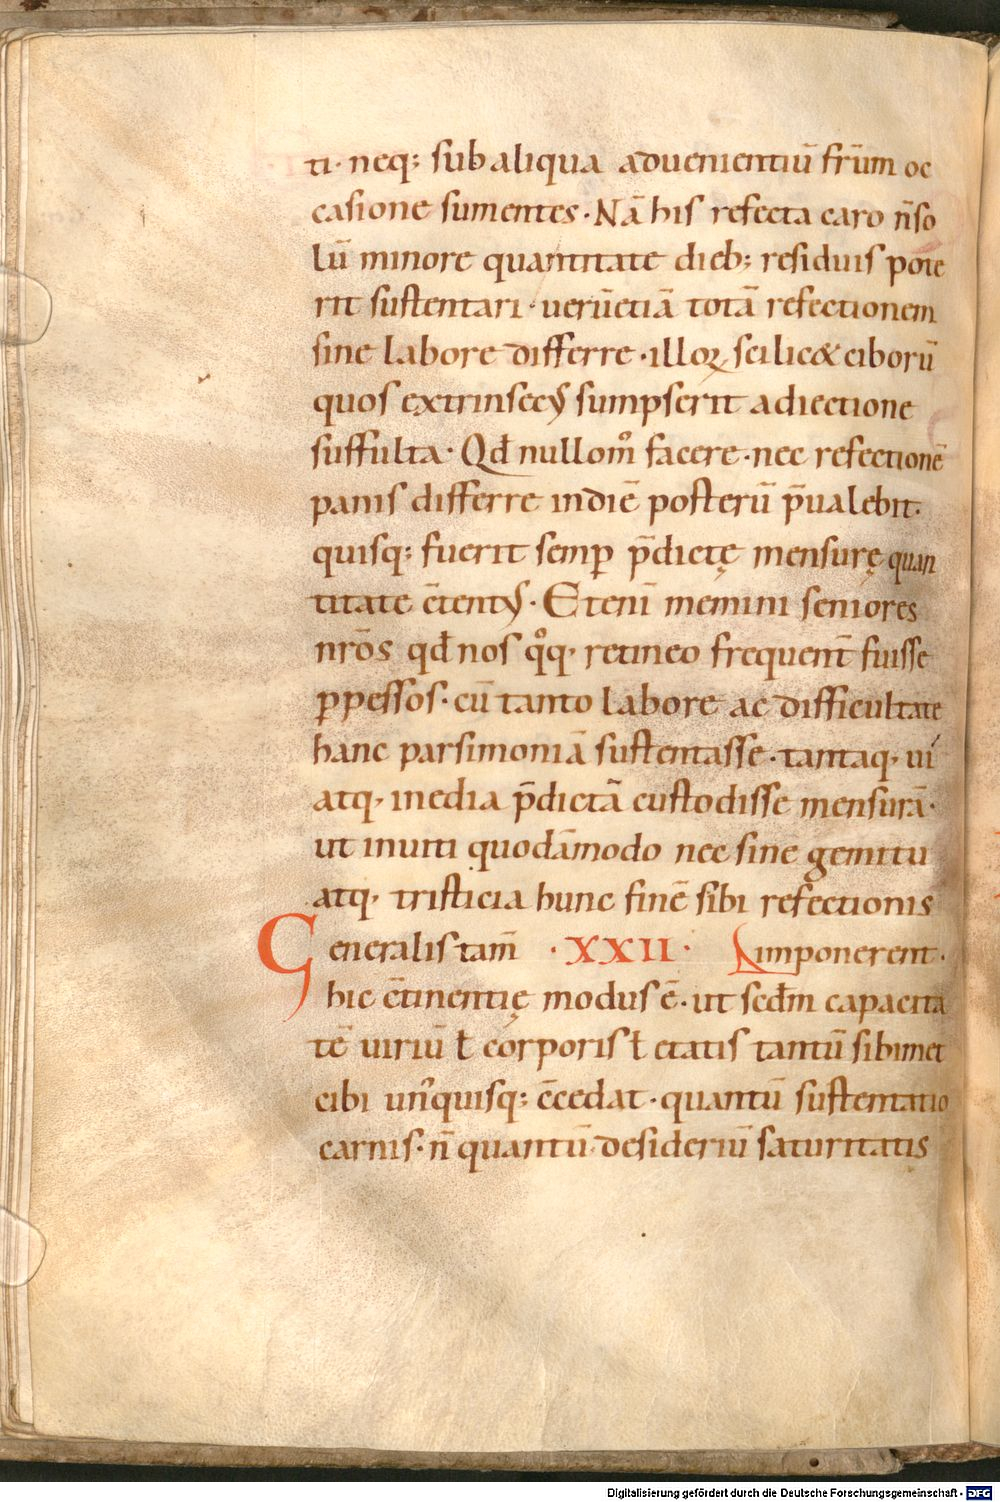 ti· neq; sub aliqua advenientiū fr̄um oc
casione sumentes· Nā his refecta caro n̄ so
lū minore quantitate dieb; residuis pote
rit sustentari· verū etiā totā refectionem
sine labore differre· illoꝝ scilic& ciborū
quos extrinsecꝰ sumpserit adiectione
suffulta· Qđ nullom̊ facere· nec refectionē
panis differre in diē posterū p̄valebit·
quisq; fuerit semp̲ p̄dictę mensurę quan
titate c̄tentꝰ· Etenī memini seniores
nr̄os qđ nos q̊q, retineo frequent̄ fuisse
ꝑpessos· cū tanto labore ac difficultate
hanc parsimoniā sustentasse· tantaq, ui
atq, inedia p̄dictā custodisse mensurā·
ut inviti quodāmodo nec sine gemitu
atq, tristicia hunc finē sibi refectionis
Generalis tam̄ ·XXII· imponerent·
hic c̄tinentię modus ē· ut scd̄m capacita
tē viriū ł corporis ł etatis tantū sibimet
cibi un̊quisq; c̄cedat· quantū sustentatio
carnis· n̄ quantū desideriū saturitatis
Digitalisierung gefördert durch die Deutsche Forschungsgemeinschaft - DFG